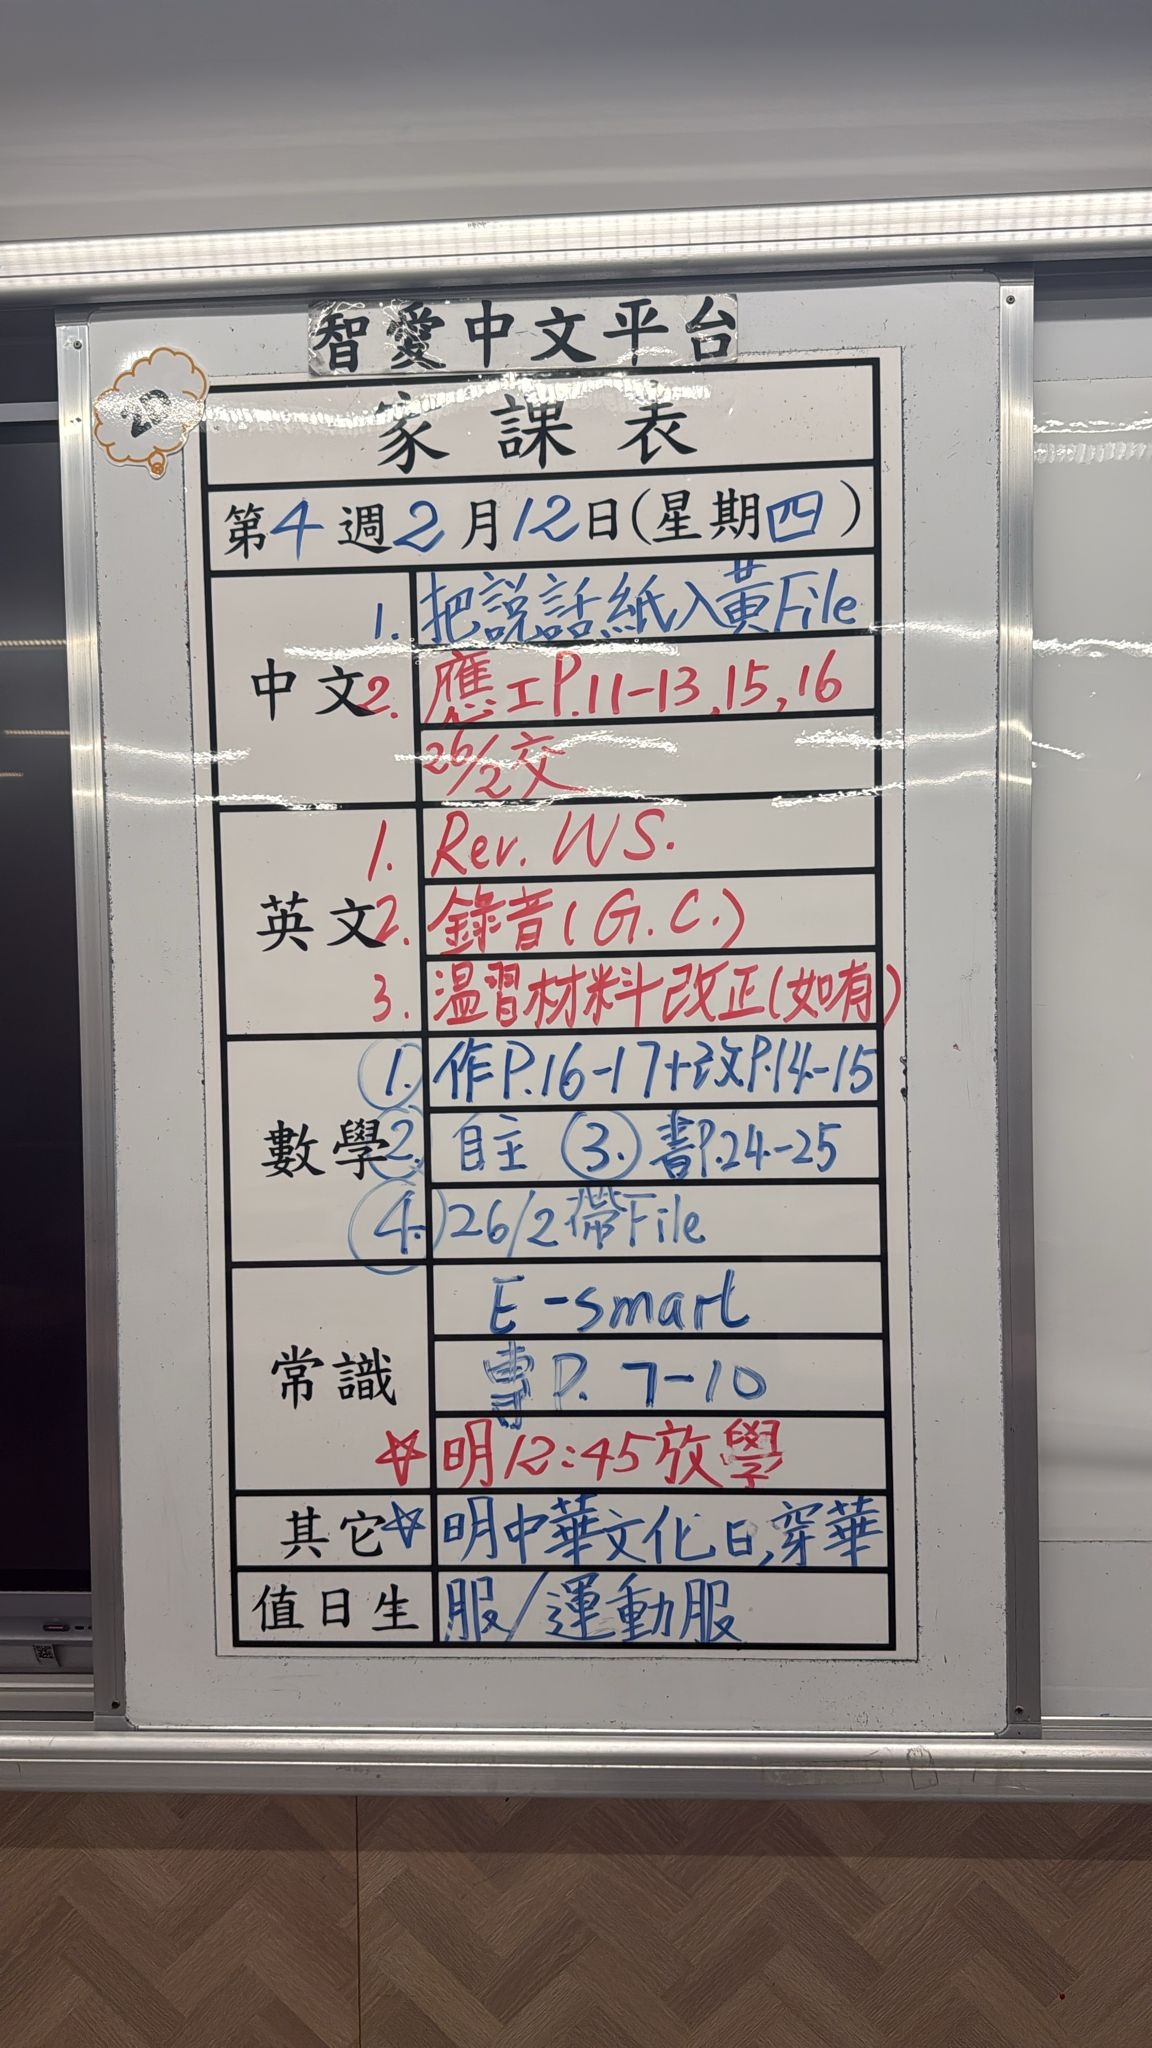 智愛中文平台
家課表
第4週2月12日(星期四)
中文
1. 把說話紙入黃File
2. 應工P.11-13,15,16
26/2交
英文
1. Rev. WS.
2. 錄音(G.C.)
3. 溫習材料改正(如有)
數學
①. 作P.16-17+改P.14-15
②. 自主 ③. 書P.24-25
④. 26/2帶File
常識
E-smart
專P. 7-10
☆明12:45放學
其它
☆明中華文化日,穿華
值日生
服/運動服